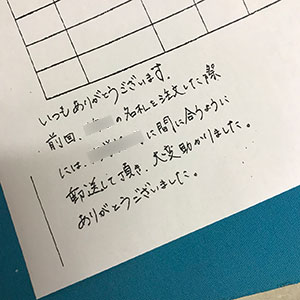 いつもありがとうございます。
前回、の名札を注文した際
には、に間に合うように
郵送して頂き、大変助かりました。
ありがとうございました。